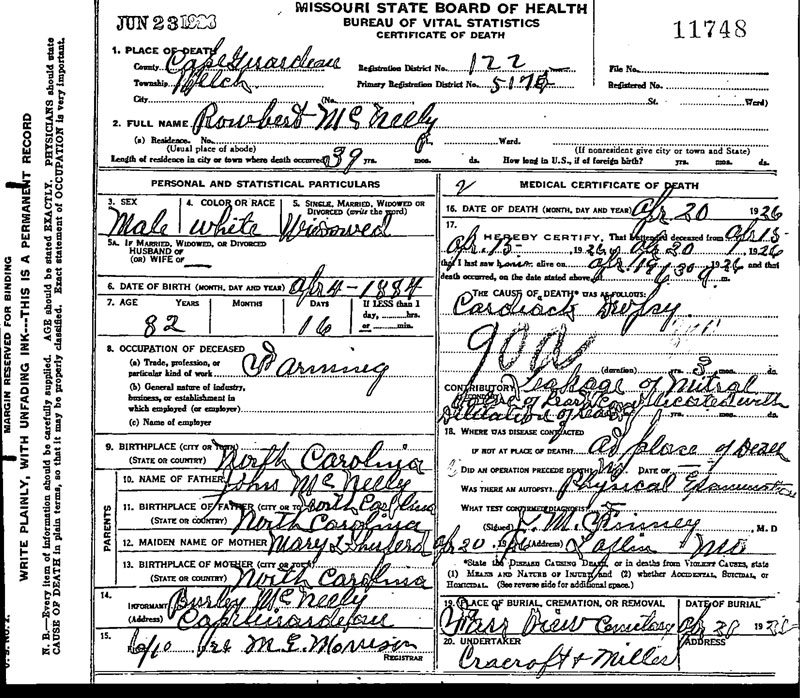 MISSOURI STATE BOARD OF HEALTH
BUREAU OF VITAL STATISTICS
CERTIFICATE OF DEATH
JUN 23
11748
1. PLACE OF DEATH
County Cape Girardeau Registration District No. 122 File No.
Township Welch Primary Registration District No. Registered No.
City (No. St. Ward)
2. FULL NAME Rowbert McNeely
(a) Residence. No. St. Ward.
(Usual place of abode) (If nonresident give city or town and State)
Length of residence in city or town where death occurred 39 yrs. mos. ds. How long in U.S., if of foreign birth? yrs. mos. ds.
PERSONAL AND STATISTICAL PARTICULARS
3. SEX 4. COLOR OR RACE 5. SINGLE, MARRIED, WIDOWED OR DIVORCED (write the word)
Male white Widowed
5A. IF MARRIED, WIDOWED, OR DIVORCED
HUSBAND OF
(OR) WIFE OF
6. DATE OF BIRTH (MONTH, DAY AND YEAR) Apr 4-1884
7. AGE YEARS MONTHS DAYS If LESS than 1 day, hrs. or min.
82 16
8. OCCUPATION OF DECEASED
(a) Trade, profession, or particular kind of work Farming
(b) General nature of industry, business, or establishment in which employed (or employer)
(c) Name of employer
9. BIRTHPLACE (CITY OR TOWN)
(STATE OR COUNTRY) North Carolina
PARENTS
10. NAME OF FATHER John McNeely
11. BIRTHPLACE OF FATHER (CITY OR TOWN) North Carolina
(STATE OR COUNTRY) North Carolina
12. MAIDEN NAME OF MOTHER Mary
13. BIRTHPLACE OF MOTHER (CITY OR TOWN)
(STATE OR COUNTRY) North Carolina
14. INFORMANT Burley McNeely
(Address) Cape Girardeau
15. M. E. Morrison
REGISTRAR
2 MEDICAL CERTIFICATE OF DEATH
16. DATE OF DEATH (MONTH, DAY AND YEAR) Apr 20 1926
17. I HEREBY CERTIFY, That I attended deceased from Apr 15-
Apr 15- 1926 Apr 20 1926
that I last saw alive on Apr 19 1926 and that
death occurred, on the date stated above m.
THE CAUSE OF DEATH* WAS AS FOLLOWS:
Cardiack Dropsy
90a
(duration) yrs. 3 mos. ds.
CONTRIBUTORY Leakage of Mitral
Valve of Heart Complicated with
Dilitation of Heart
18. WHERE WAS DISEASE CONTRACTED
IF NOT AT PLACE OF DEATH? At place of Death
DID AN OPERATION PRECEDE DEATH? No DATE OF
WAS THERE AN AUTOPSY?
WHAT TEST CONFIRMED DIAGNOSIS? Physical Examination
(Signed) M. Kinney M.D
Apr 20, 19 26 (Address) Laflin Mo
*State the DISEASE CAUSING DEATH, or in deaths from VIOLENT CAUSES, state
(1) MEANS AND NATURE OF INJURY, and (2) whether ACCIDENTAL, SUICIDAL, or
HOMICIDAL. (See reverse side for additional space.)
19. PLACE OF BURIAL, CREMATION, OR REMOVAL DATE OF BURIAL
Cemetery Apr 19
20. UNDERTAKER ADDRESS
Cracroft & Miller
V. S. NO. 2.
MARGIN RESERVED FOR BINDING
WRITE PLAINLY, WITH UNFADING INK---THIS IS A PERMANENT RECORD
N. B.—Every item of information should be carefully supplied. AGE should be stated EXACTLY. PHYSICIANS should state
CAUSE OF DEATH in plain terms, so that it may be properly classified. Exact statement of OCCUPATION is very important.